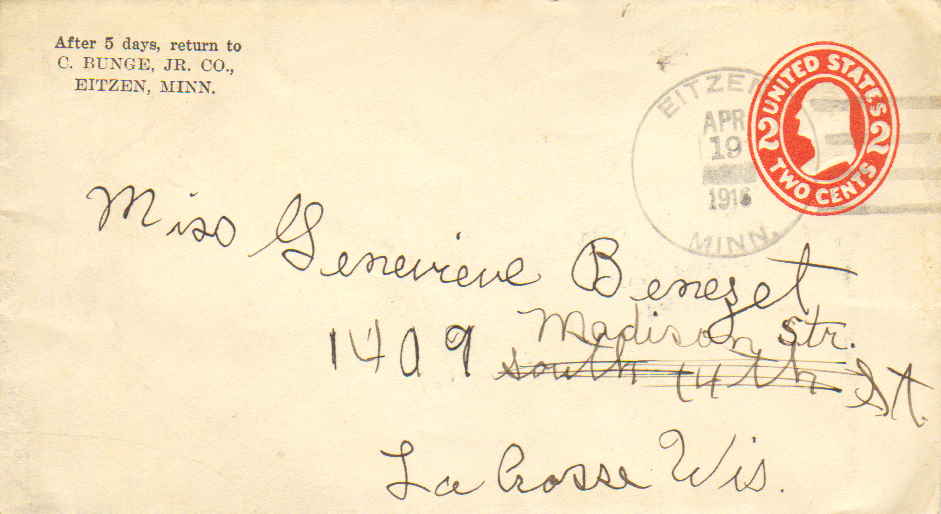 After 5 days, return to
C. BUNGE, JR. CO.,
EITZEN, MINN.
EITZEN
APR
19
MINN.
UNITED STATES
2 2
TWO CENTS
Miss Genevieve Benezet
Madison Str.
1409 south 14th St.
La Crosse Wis.